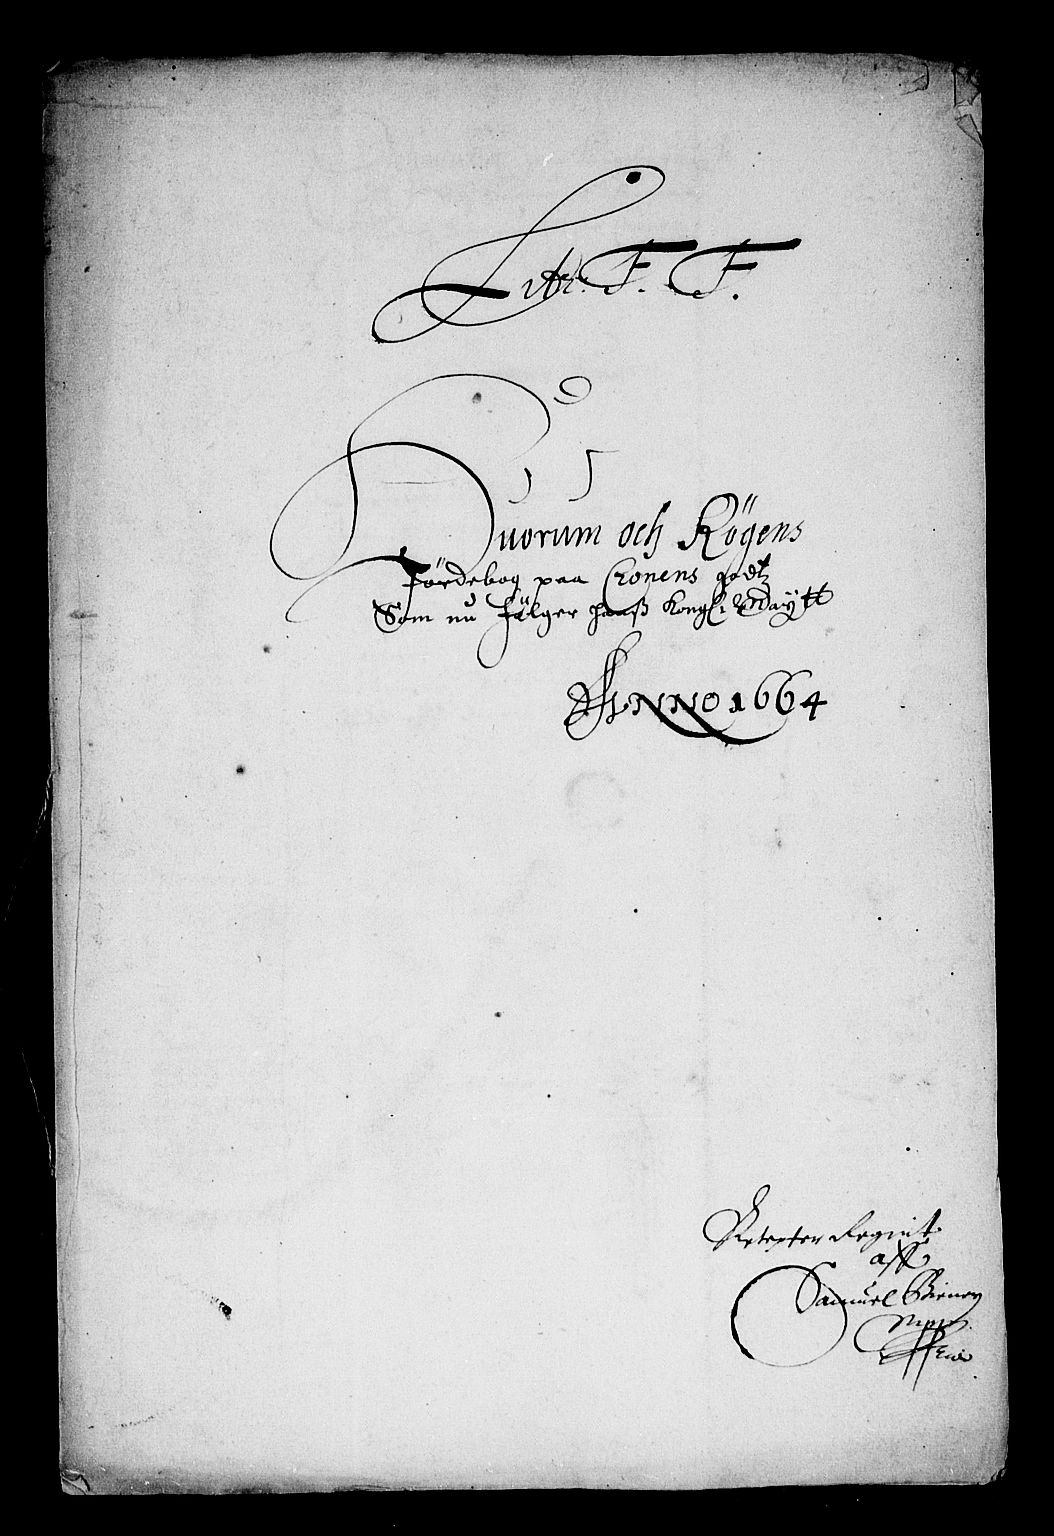 Litr: F. F.
Quorum och Rögens
Jördebog paa Cronens godtz
Som nu fölger hanß Kongl:
ANNO 1664
aff
Samuel